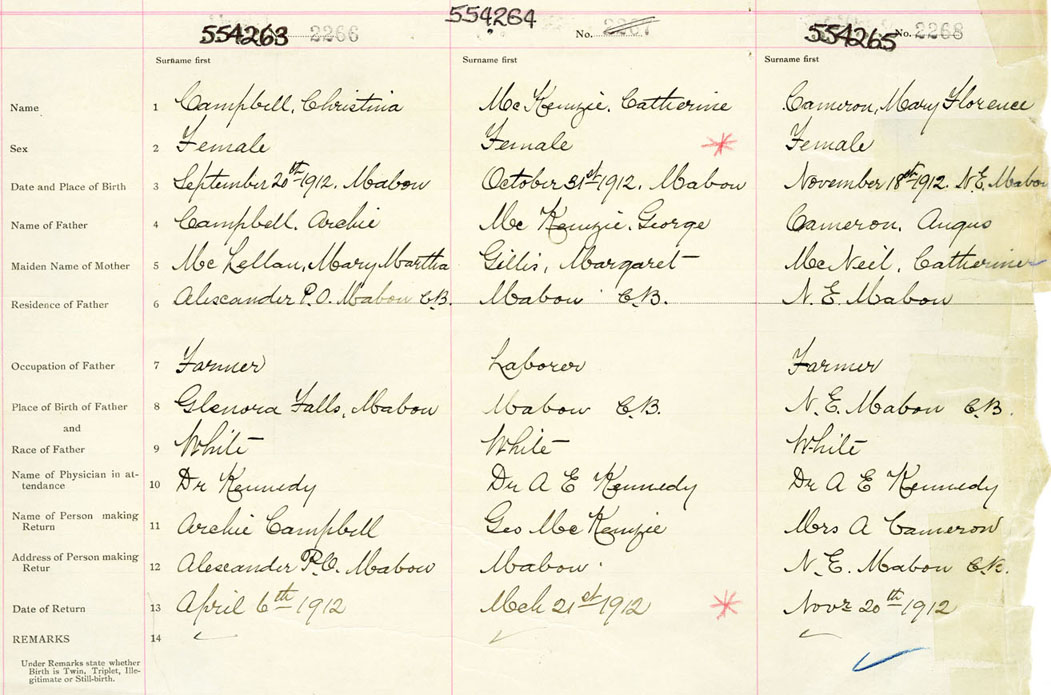 554263 2266 554264 No. 2267 554265 No. 2268
Surname first Surname first Surname first
Name 1 Campbell, Christina Mc Kenzie, Catherine Cameron, Mary Florence
Sex 2 Female Female Female
Date and Place of Birth 3 September 20st 1912. Mabou October 31st 1912. Mabou November 18st 1912. N.E. Mabou
Name of Father 4 Campbell, Archie Mc Kenzie, George Cameron, Angus
Maiden Name of Mother 5 Mc Lellan, Mary Martha Gillis, Margaret McNeil, Catherine
Residence of Father 6 Alexander P.O. Mabou C.B. Mabou C.B. N.E. Mabou
Occupation of Father 7 Farmer Laborer Farmer
Place of Birth of Father 8 Glenora Falls, Mabou Mabou C.B. N.E. Mabou C.B.
and
Race of Father 9 White White White
Name of Physician in at-
tendance 10 Dr Kennedy Dr A E Kennedy Dr A E Kennedy
Name of Person making
Return 11 Archie Campbell Geo Mc Kenzie Mrs A Cameron
Address of Person making
Retur 12 Alexander P.O. Mabou Mabou N.E. Mabou C.B.
Date of Return 13 April 6th 1912 Mch 21st 1912 Novr 20th 1912
REMARKS 14
Under Remarks state whether
Birth is Twin, Triplet, Ille-
gitimate or Still-birth.